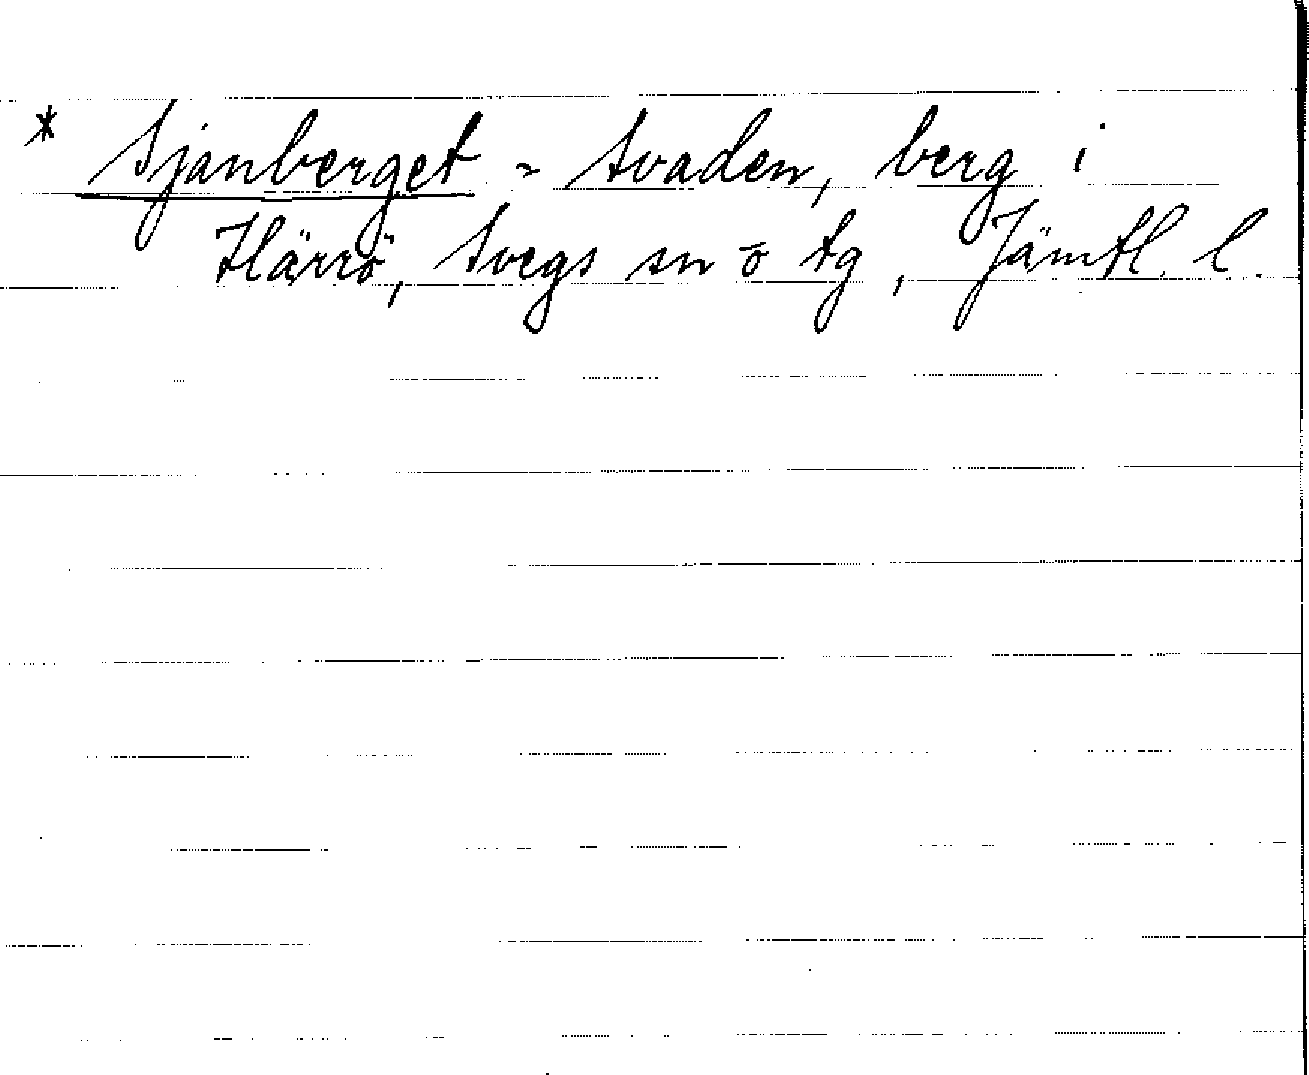 * Sjanberget = Svaden, berg i
Härrö, Svegs sn o tg, Jämtl. l.